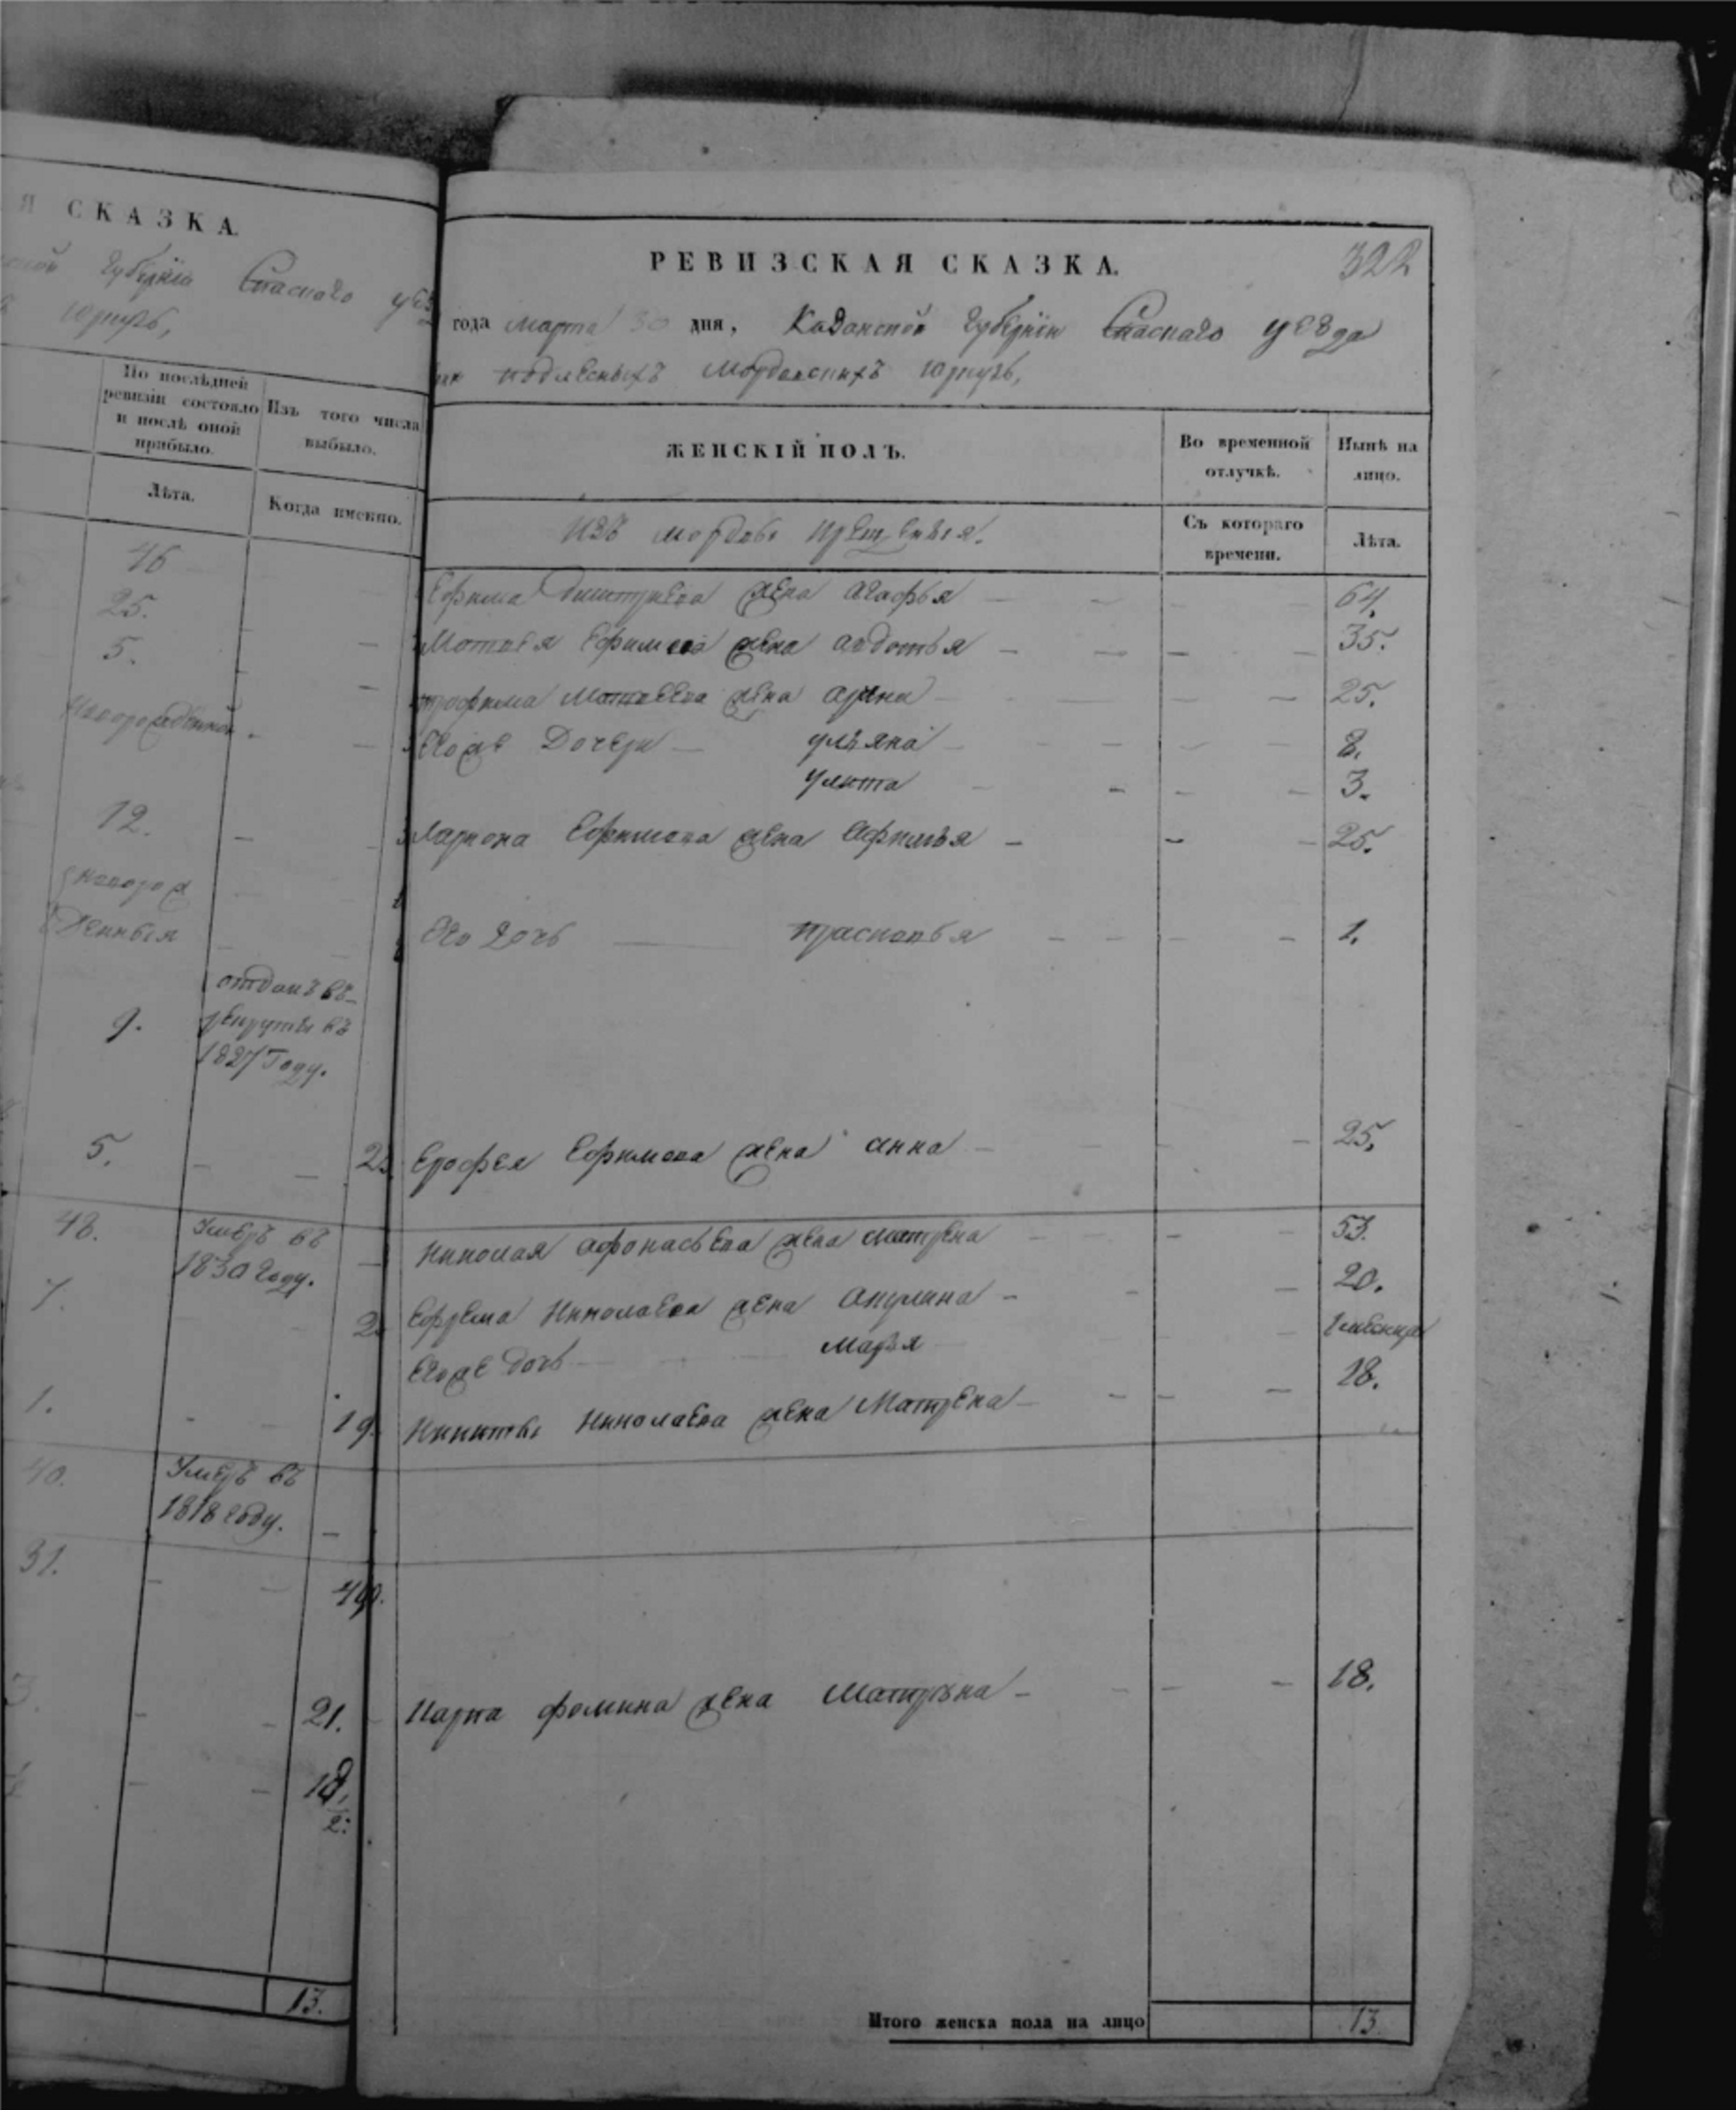 Я СКАЗКА.
губернiи Спаскаго уез
юрткуль,
По послѣдней
ревизiи состояло
и послѣ оной
прибыло.
Изъ того числа
выбыло.
Лѣта.
Когда именно.
46
25.
5.
новорожденной
12.
новорож
денныя
9.
отданъ въ
рекруты въ
1827 Году.
5.
48.
Умеръ въ
1830 году.
7.
1.
19.
40.
Умеръ въ
1818 году.
31.
49.
21.
18.
2:
13.
РЕВИЗСКАЯ СКАЗКА.
322
года марта 30 дня, Казанской губернiи Спаскаго уезда
подлесныхъ Мордовскихъ юрткуль,
ЖЕНСКIЙ ПОЛЪ.
Во временной
отлучкѣ.
Нынѣ на
лицо.
Изъ мордвы крещеныя.
Съ котораго
времени.
Лѣта.
Ефима Дмитриева жена агафья 64.
Мотвея Ефимова жена авдотья 35.
трофима Матвеева жена арина 25.
Егоже Дочери ульяна 8.
улита 3.
Лариона Ефимова жена Афимья 25.
Его дочь прасковья 1.
Ерофея Ефимова жена анна 25.
Николая афонасьева жена матрена 53.
Ефрема Николаева жена акулина 20.
Егоже дочь марья 1 месяца
Никиты Николаева жена Матрена 18.
Карпа фомина жена Матрена 18.
Итого женска пола на лицо 13.